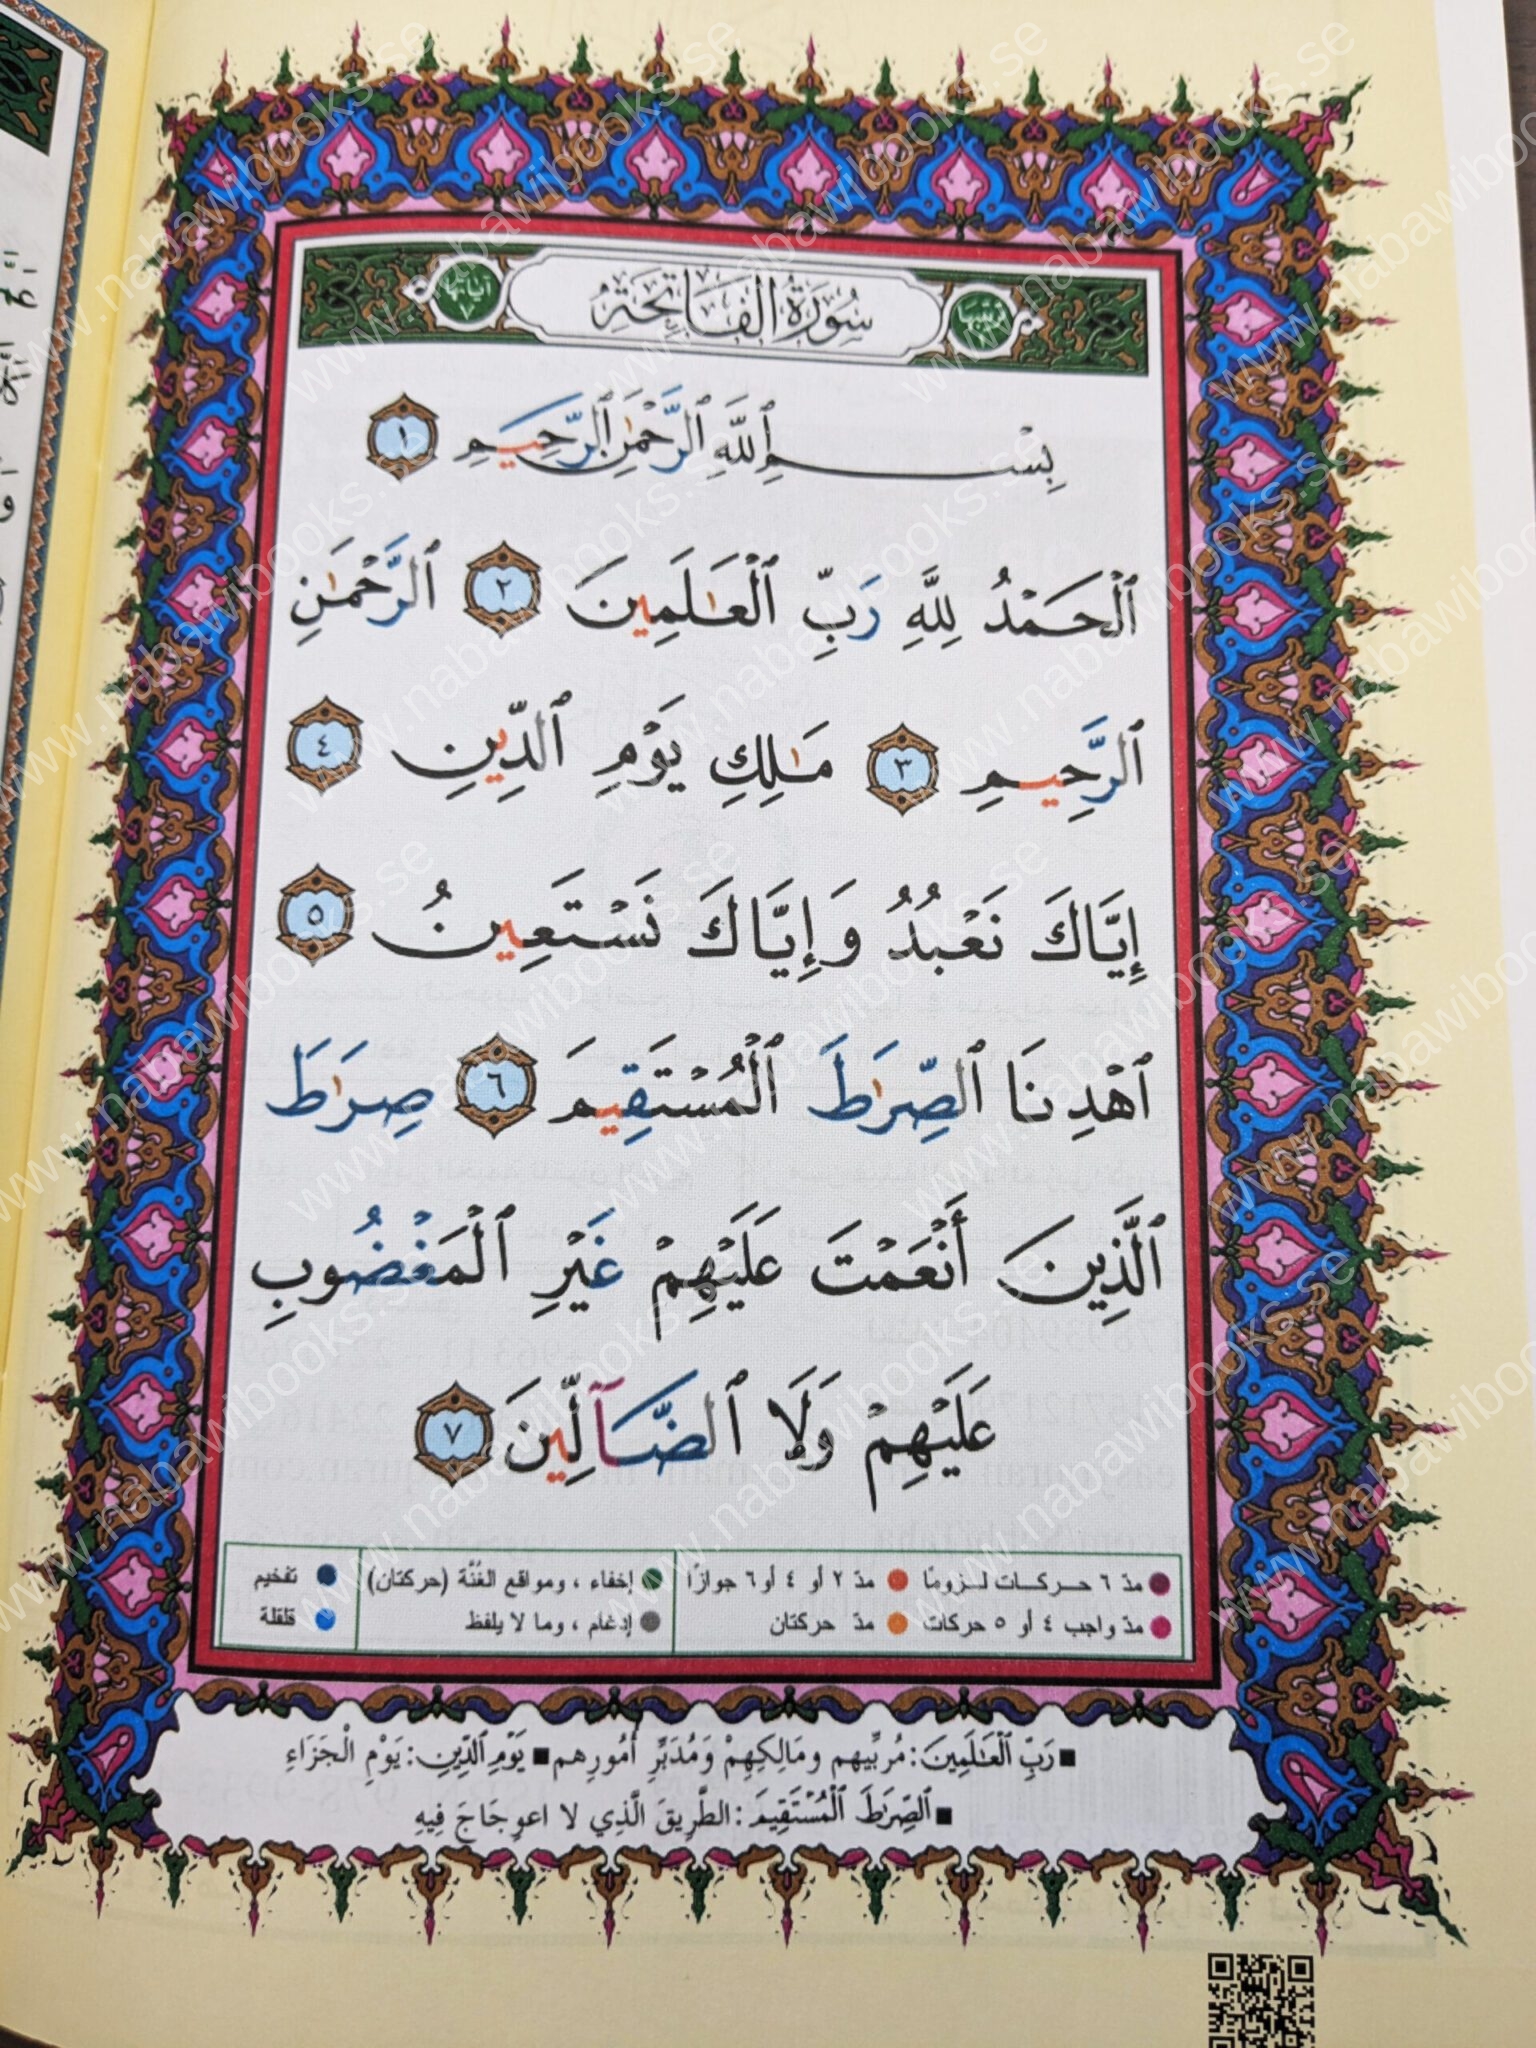 سُورَةُ الْفَاتِحَةِ
ترتيبها ١
آياتها ٧
بِسْمِ ٱللَّهِ ٱلرَّحْمَٰنِ ٱلرَّحِيمِ ١
ٱلْحَمْدُ لِلَّهِ رَبِّ ٱلْعَٰلَمِينَ ٢ ٱلرَّحْمَٰنِ
ٱلرَّحِيمِ ٣ مَٰلِكِ يَوْمِ ٱلدِّينِ ٤
إِيَّاكَ نَعْبُدُ وَإِيَّاكَ نَسْتَعِينُ ٥
ٱهْدِنَا ٱلصِّرَٰطَ ٱلْمُسْتَقِيمَ ٦ صِرَٰطَ
ٱلَّذِينَ أَنْعَمْتَ عَلَيْهِمْ غَيْرِ ٱلْمَغْضُوبِ
عَلَيْهِمْ وَلَا ٱلضَّآلِّينَ ٧
مدّ ٦ حركات لزوماً
مدّ واجب ٤ أو ٥ حركات
مدّ ٢ أو ٤ أو ٦ جوازاً
مدّ حركتان
إخفاء ، ومواقع الغُنَّة (حركتان)
إدغام ، وما لا يلفظ
تفخيم
قلقلة
■ رَبِّ ٱلْعَٰلَمِينَ: مُرَبِّيهم ومَالِكِهِمْ وَمُدَبِّرِ أُمُورِهم ■ يَوْمِ ٱلدِّينِ: يَوْمِ الْجَزَاءِ
■ ٱلصِّرَٰطَ ٱلْمُسْتَقِيمَ: الطَّرِيقَ الَّذِي لا اعوِجَاجَ فِيهِ
www.nabawibooks.se